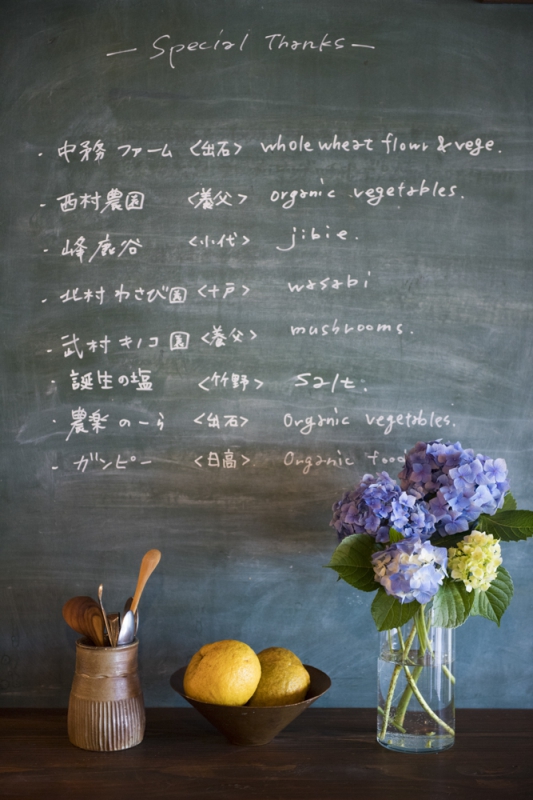 — Special Thanks —
・中務ファーム <出石> whole wheat flour & vege.
・西村農園 <養父> organic vegetables.
・峰鹿谷 <小代> jibie.
・北村わさび園 <十戸> wasabi
・武村キノコ園 <養父> mushrooms.
・誕生の塩 <竹野> salt.
・農楽のーら <出石> Organic vegetables.
・ガンピー <日高> Organic food